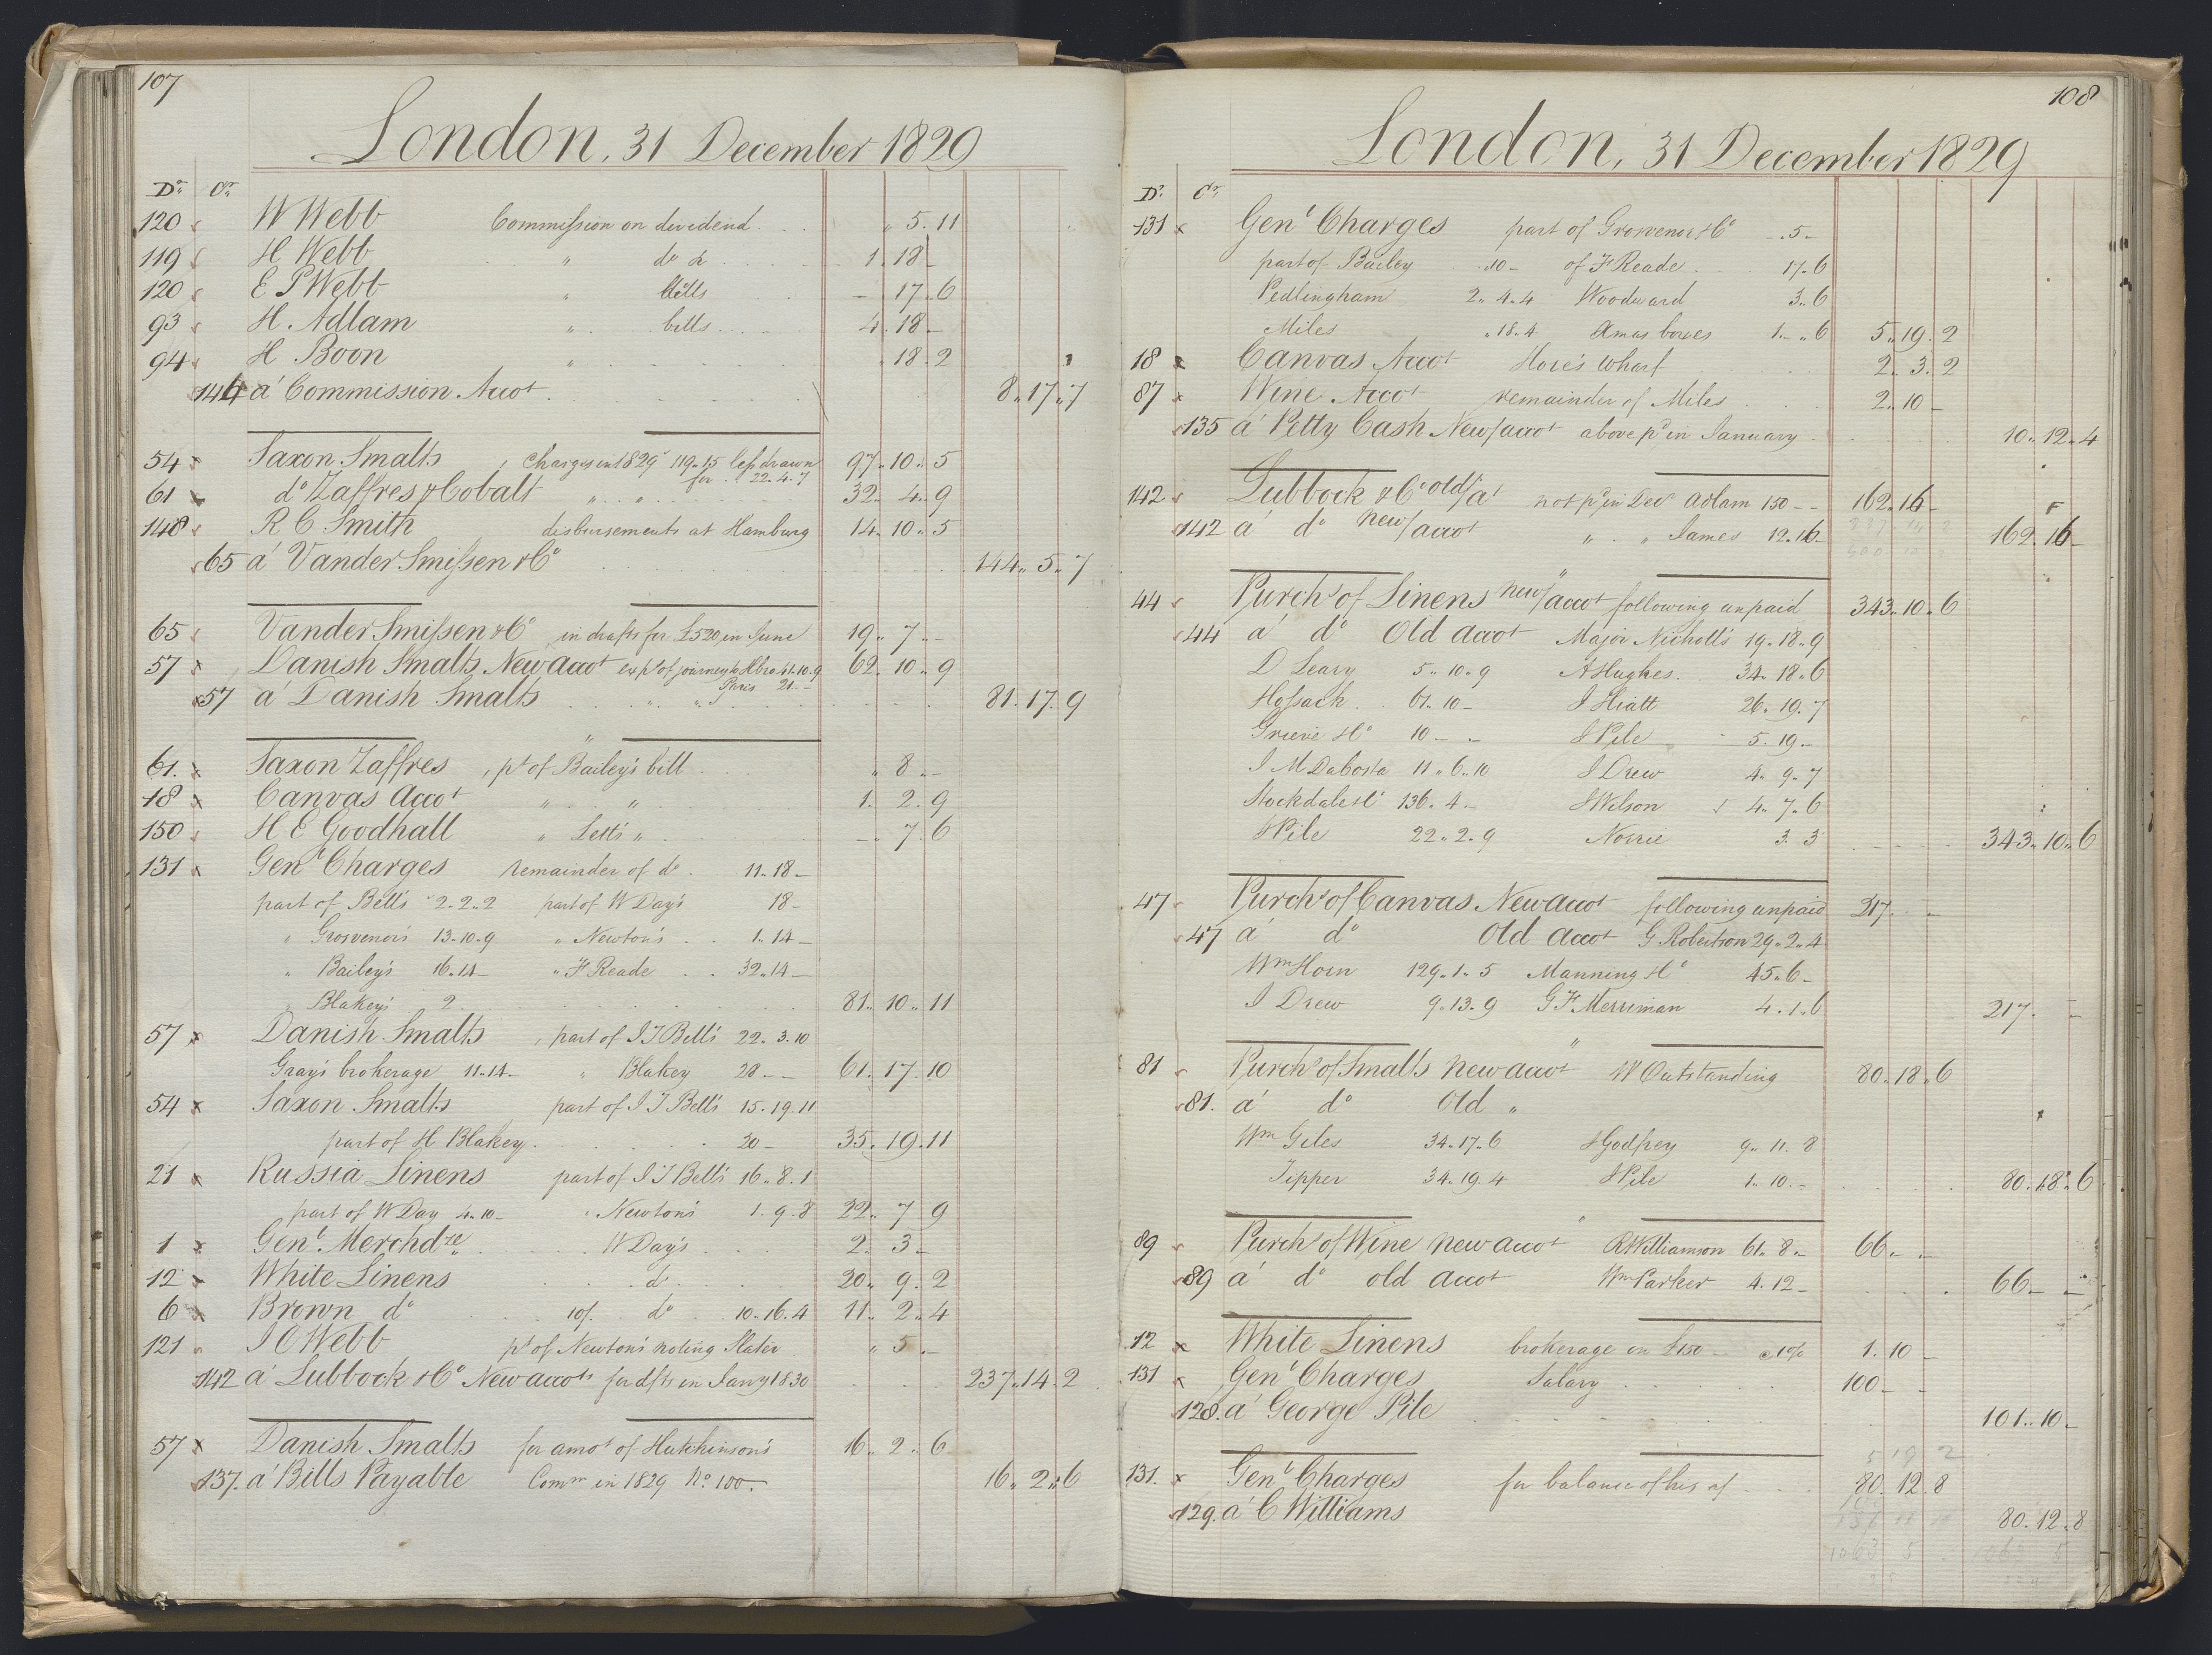 107
London, 31 December 1829
Dr. Cr.
120 W Webb Commission on dividend . . . " 5. 11
119 H Webb " do & 1. 18 -
120 E P Webb " bills - 17. 6
93 H. Adlam " bills 4. 18 -
94 H Boon " " 18. 2
144 á Commission Accot 8. 17. 7
54 Saxon Smalts, Charges ent 1829 119..15 less drawn 97. 10. 5
for 22. 4. 7
61 do Zaffres & Cobalt " " 32. 4. 9
148 R C Smith disbursements at Hamburg 14. 10. 5
65 á Vander Smissen & Co 144. 5. 7
65 Vander Smissen & Co in drafts for £520 in June 19. 7. -
57 Danish Smalts New accot exps of journey to Hbro 41. 10. 9 62. 10. 9
Paris 21 -
57 á Danish Smalts " " 81. 17. 9
61. Saxon Zaffres, pt of Bailey's bill " 8. -
18 Canvas Accot " " 1. 2. 9
150 H E Goodhall " Lett's " - . 7. 6
131 Genl Charges remainder of do 11. 18 -
part of Bell's 2. 2. 2 part of W Day's 18 -
" Grosvenor's 13. 10. 9 " Newton's 1. 14 -
" Bailey's 16. 14 - " F Reade 32. 14 -
Blakey's 2 81. 10. 11
57 Danish Smalts, part of I T Bell's 22. 3. 10
Gray's brokerage 11. 14 - " Blakey 28 - - 61. 17. 10
54 Saxon Smalts part of I T Bell's 15. 19. 11
part of H Blakey 20 - 35. 19. 11
21 Russia Linens part of I T Bell's 16. 8. 1
part of W Day 4. 10 - " Newton's 1. 9. 8 22. 7 9
1 Genl. Merchdze W Day's 2. 3 -
12 White Linens do 20. 9. 2
6 Brown do 10/. do 10. 16. 4 11. 2. 4
121 I O Webb pt of Newton's noting Slater " 5. -
142 á Lubbock & Co New accots for dfts in Jany 1830 237. 14. 2
57 Danish Smalts for amot of Hutchinson's 16. 2. 6
137. á Bills Payable Commn in 1829 No. 100. - 16. 2. 6
108
London, 31 December 1829
Dr. Cr.
131 Genl Charges part of Grosvenor & Co - . 5 -
part of Bailey . 10 - of F Reade 17. 6
Pedlingham 2. 4. 4 Woodward 3. 6
Miles " 18. 4 Xmas boxes 1. - . 6 5. 19. 2
18 Canvas Accot Hore's Wharf 2. 3. 2
87 Wine Accot remainder of Miles 2. 10 -
135 á Petty Cash New/accot above pd in January 10. 12. 4
142 Lubbock & Co old/at not pd in Decr Adlam 150 - - 162. 16 -
142 á do new/accot " " James 12. 16 - 162. 16 -
44 Purchs of Linens new/accot following unpaid 343. 10. 6
44 á do Old Accot Major Nicholls 19. 18. 9
D Leary 5. 10. 9 A Hughes. 34. 18. 6
Hossack 61. 10 - I Hiatt 26. 19. 7
Grieve & Co 10 - . - I Pile 5. 19. -
I M DaCosta 11. 6. 10 I Drew 4. 9. 7
Stockdale & Co 136. 4. - I Wilson 4. 7. 6
I Pile 22. 2. 9 Norrie 3. 3 343. 10. 6
47 Purchs of Canvas New accot following unpaid 217. . -
47 á do Old Accot G Robertson 29. 2. 4
Wm Horn 129. 1. 5 Manning & Co 45. 6 -
I Drew 9. 13. 9 G F Merriman 4. 1. 6 217. -
81 Purchs of Smalts new accot W Outstanding 80. 18. 6
81. á do Old "
Wm Giles 34. 17. 6 I Godfrey 9. 11. 8
Tipper 34. 19. 4 I Pile 1. 10. - 80. 18. 6
89 Purchs of Wine new accot R Williamson 61. 8. - 66. . -
89 á do old accot Wm Parker 4. 12 - 66 - -
12 White Linens brokerage on £150 - @ 1% 1. 10 -
131 Genl Charges Salary 100 - -
128. á George Pile 101. 10 -
5 19 2
131. Genl Charges for balance of his a/ 80. 12. 8
129. á C Williams 80. 12. 8
1063 5